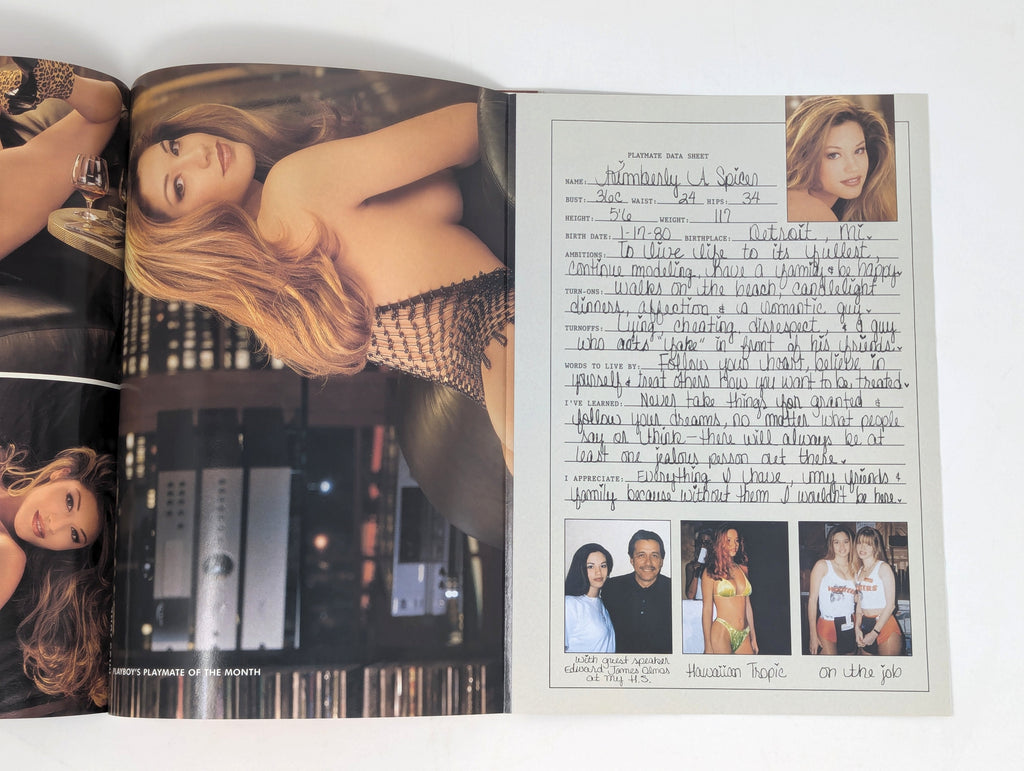 PLAYBOY'S PLAYMATE OF THE MONTH
PLAYMATE DATA SHEET
NAME: Kimberly A Spicer
BUST: 36C WAIST: 24 HIPS: 34
HEIGHT: 5'6 WEIGHT: 117
BIRTH DATE: 1-17-80 BIRTHPLACE: Detroit, Mi.
AMBITIONS: To live life to its fullest,
continue modeling, have a family & be happy.
TURN-ONS: walks on the beach, candlelight
dinners, affection & a romantic guy.
TURNOFFS: Lying, cheating, disrespect, & a guy
who acts "fake" in front of his friends.
WORDS TO LIVE BY: Follow your heart, believe in
yourself & treat others how you want to be treated.
I'VE LEARNED: Never take things for granted &
follow your dreams, no matter what people
say or think - there will always be at
least one jealous person out there.
I APPRECIATE: Everything I have, my friends &
family because without them I wouldn't be here.
with guest speaker
Edward James Olmos
at my H.S.
Hawaiian Tropic
on the job